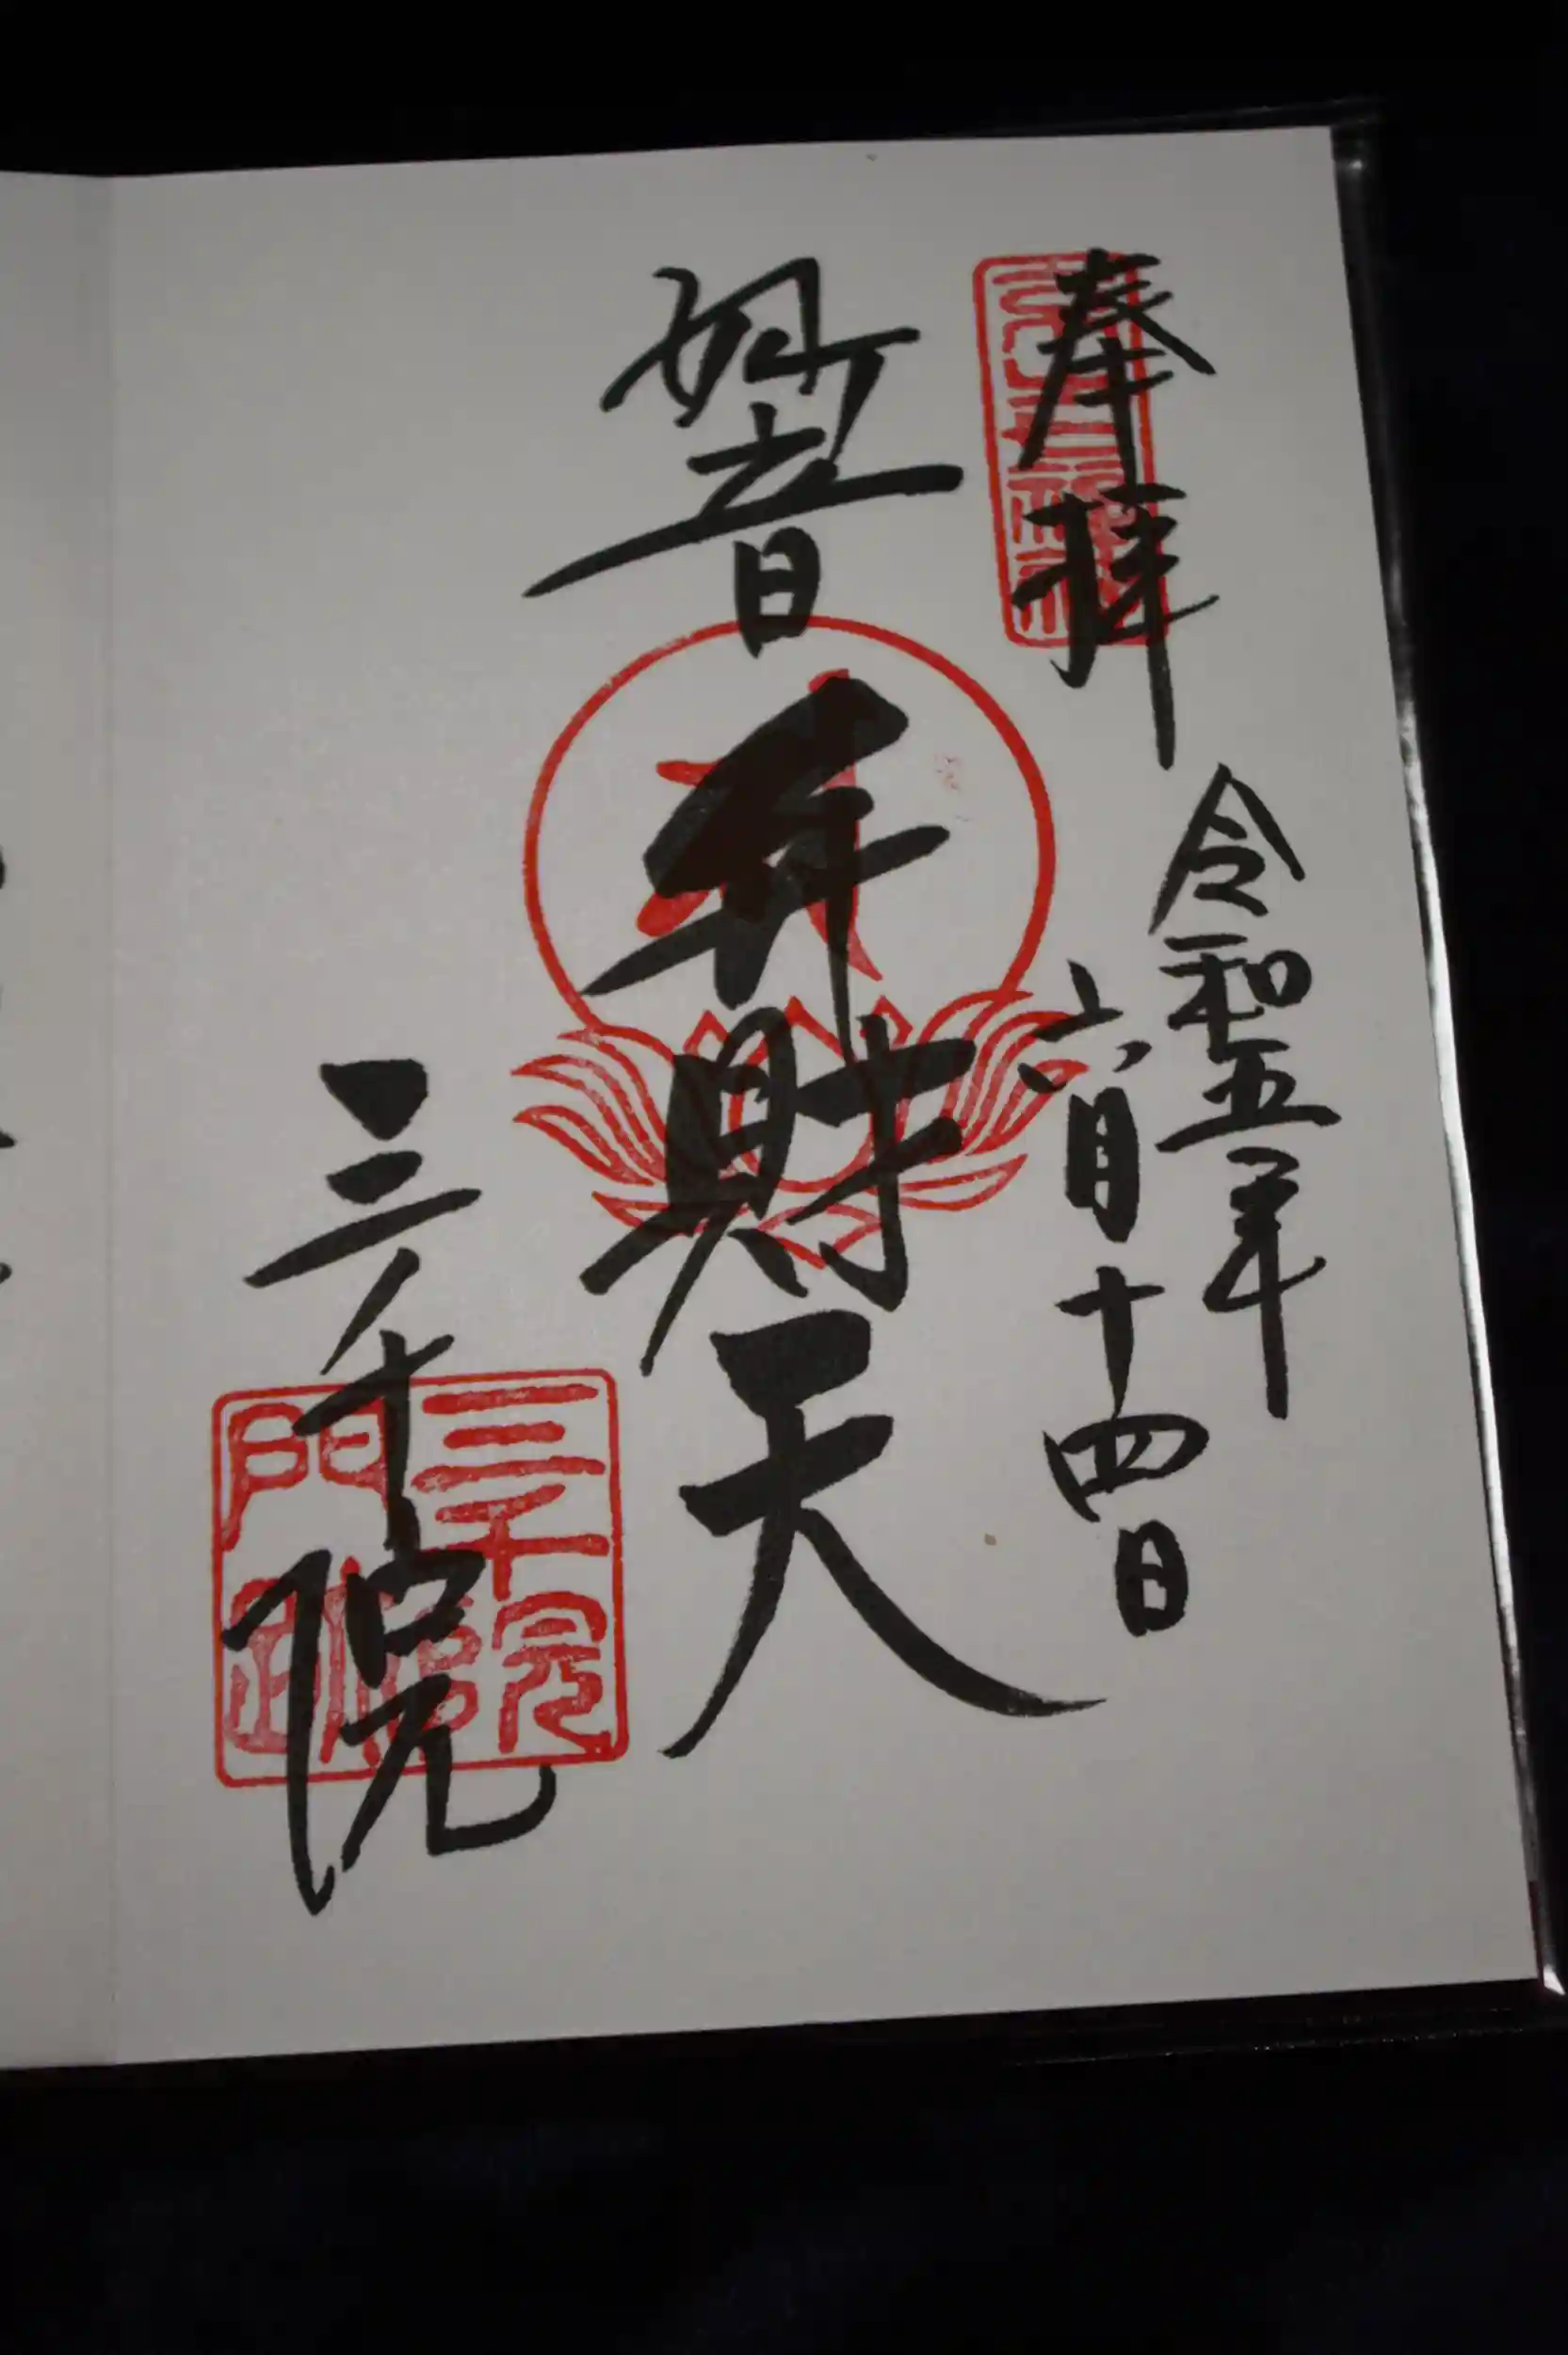 奉拝
令和五年
六月十四日
妙音
弁財天
三千院
三千院
門跡